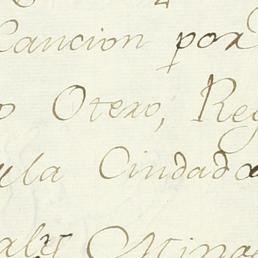 Cancion por
o Otero, Reg
ula Ciudada
aly Mina